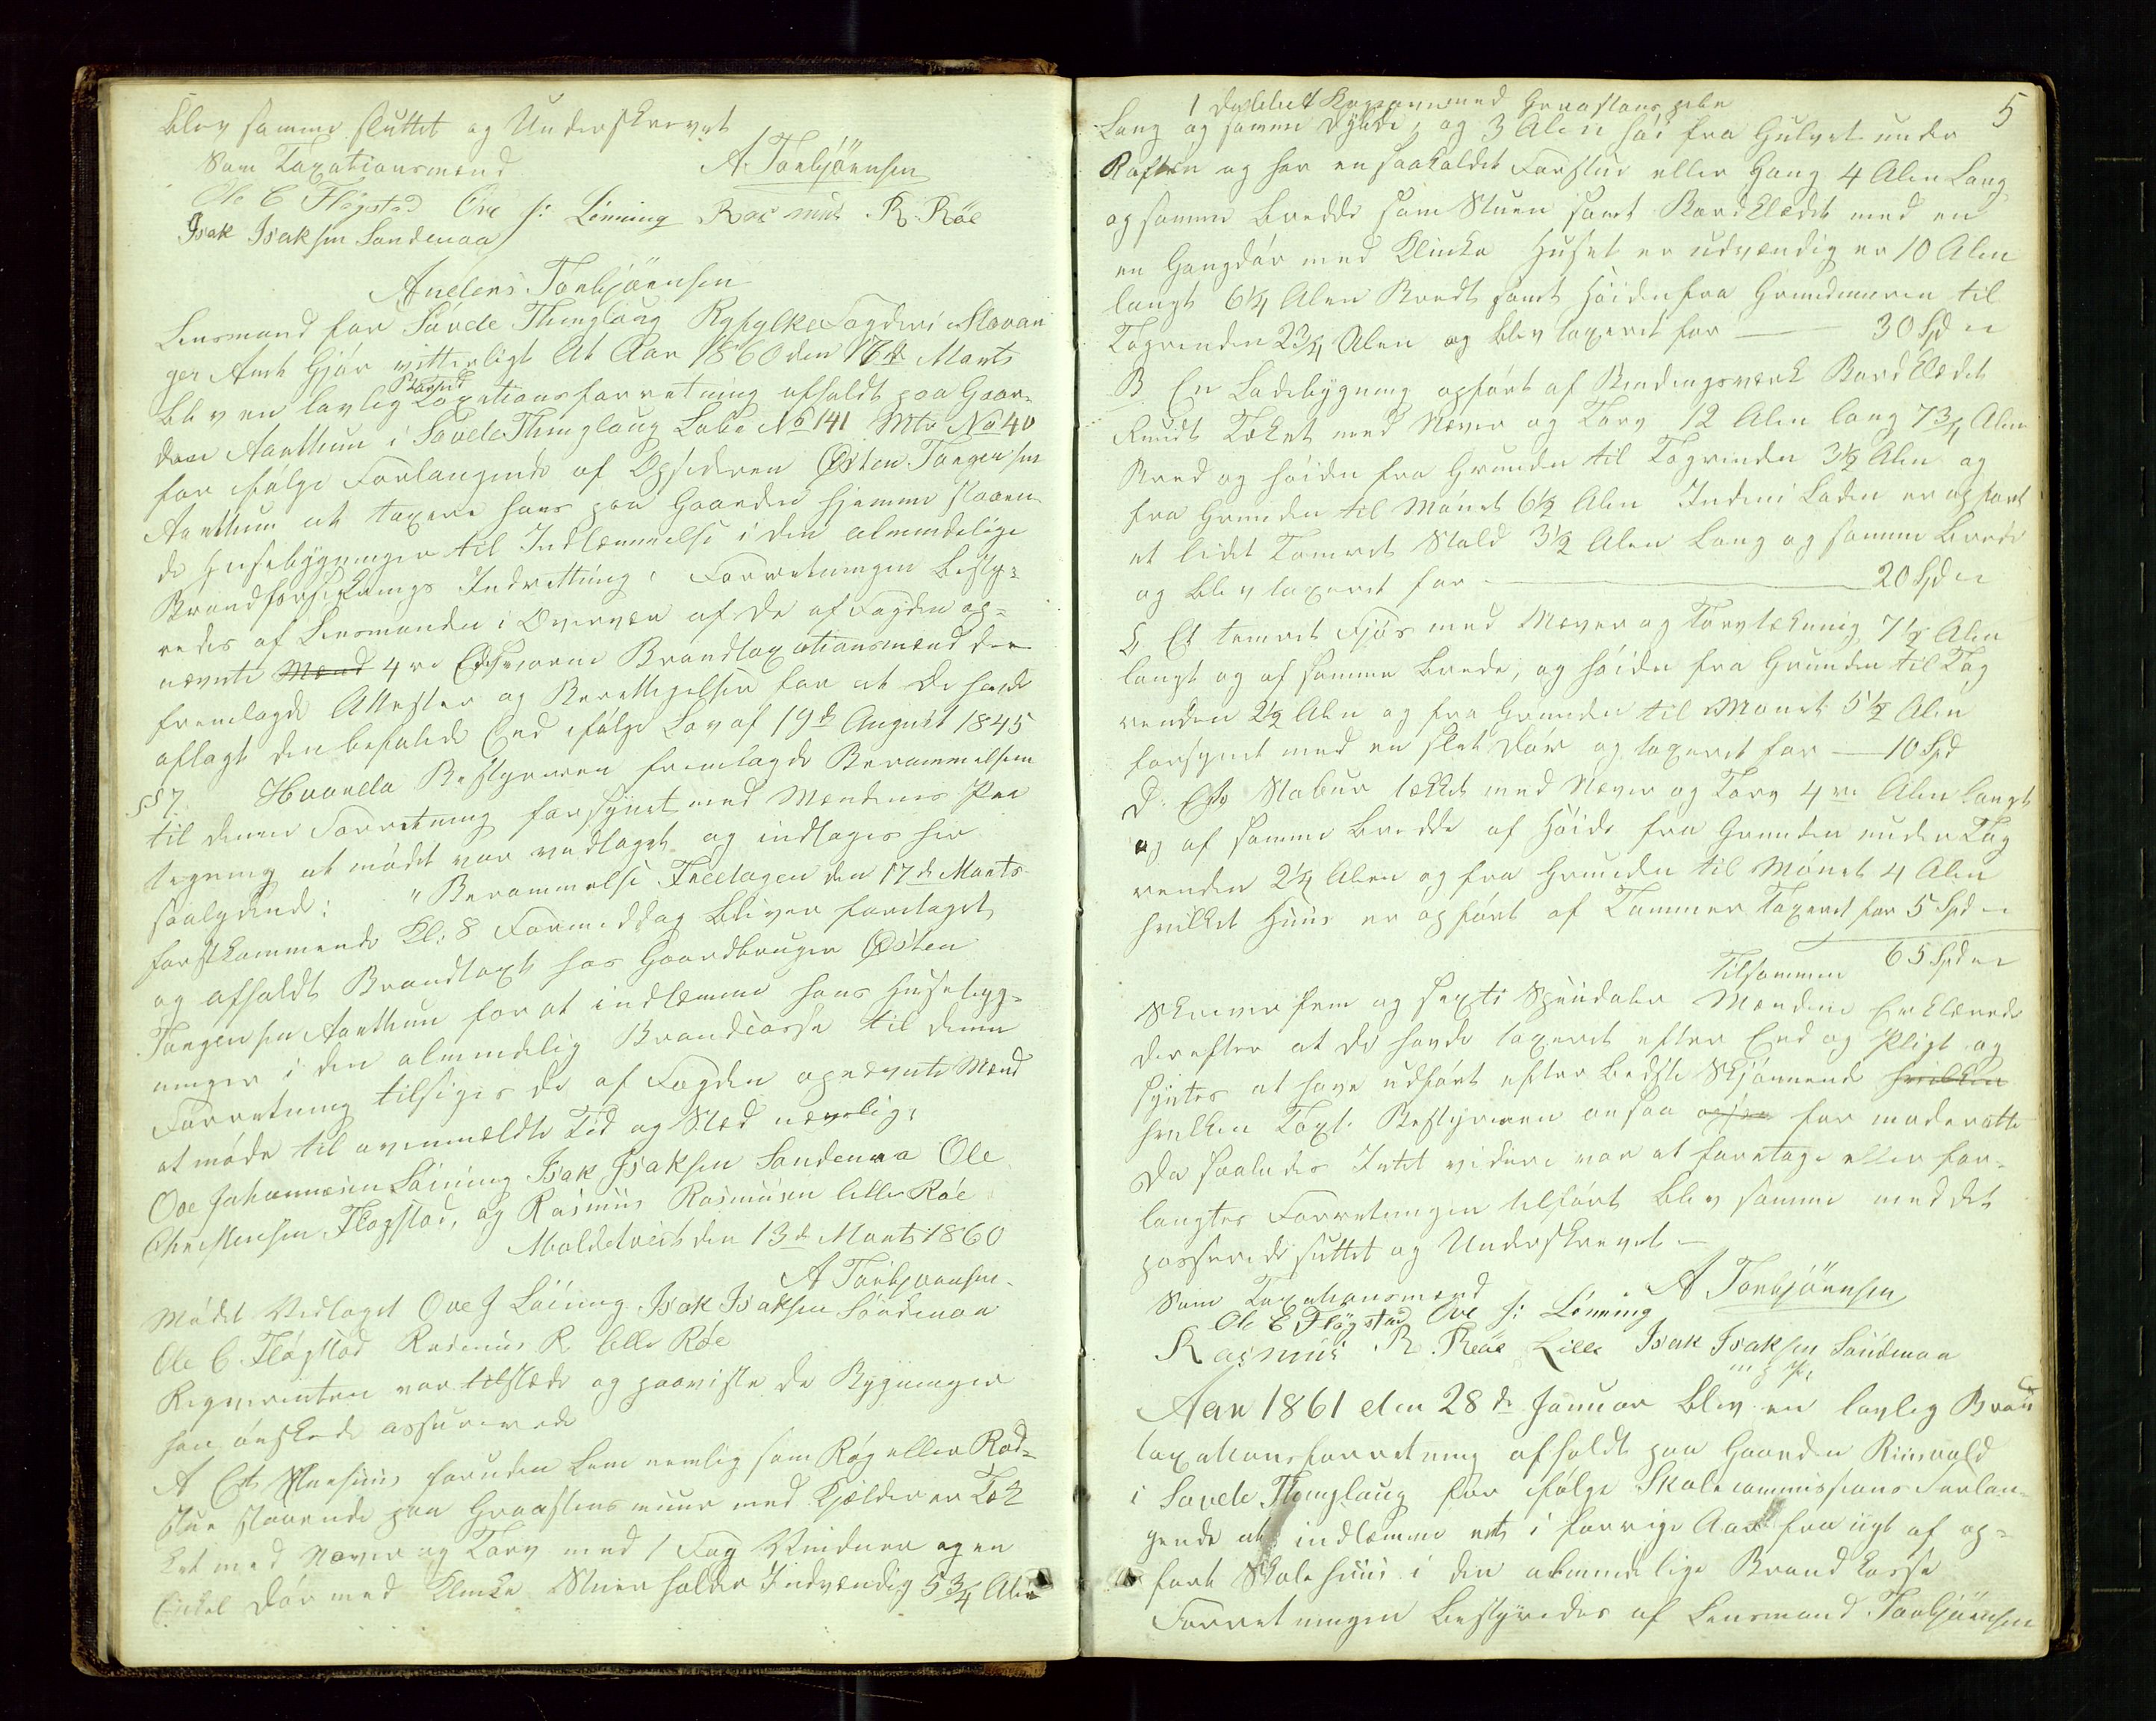 blev samme sluttet og Underskrevet
Som Taxationsmænd A. Torbjörnsen
Ole C Flögstad Ove J: Lönning Rasmus R. Röe
Isak Isaksen Sandenaa
Anders Torbjörnsen
Lensmand for Sövde Thinglaug Ryfylke Fogderi Stavan
ger Amt Gjör vitterligt At Aar 1860 den 17de Marts
blev en lovlig Brand Taxationsforretning afholdt paa Gaar-
den Aarthun i Sövde Thinglaug Löbe No 141 Mtr No 40
for ifölge Forlangende af Opsidderen Östen Tangensen
Aarthun at taxere hans paa Gaarden hjemme staaen-
de Husebygninger til Indlæmmelse i den almindelige
Brandforsikrings Indrettning. Forretningen besty-
redes af Lensmanden i Overvær af de af Fogden op-
nævnte Mænd 4re Edsvorne Brandtaxationsmænd der
fremlagde Attester og Berettigelser for at de havde
aflagt den befalede Eed ifölge Lov af 19de August 1845
§§ 7. Hvorda Bestyreren fremlagde Berammelsen
til denne Forretning forsynet med Mændenes Paa
tegning at mödet var vedtaget og indtages her
saalydende: "Berammelse Fredagen den 17de Marts
förstkommende Kl: 8 Formiddag bliver foretaget
og afholdt Brandtaxt hos Gaardbruger Östen
Tangensen Aarthun for at indlemme hans Husebyg-
ninger i den almindelig Brandcasse til denne
Forretning tilsiges de af Fogden opnævnte Mænd
at möde til ovenmældte Tid og Sted nævnlig:
Ove Johannesen Löining Isak Isaksen Sandenaa Ole
Christensen Flögstad, og Rasmus Rasmusen lille Röe
Maldetveit den 13de Marts 1860
A Torbjörnsen.
Mödet Vedtaget Ove J Löining Isak Isaksen Söndenaa
Ole C Flögstad Rasmus R lille Röe
Reqvirenten var tilstede og paaviste de Bygninger
han önskede assurerede
A Et Vaanhuus foruden Lem nemlig som Rög eller Rod-
stue staaende paa Graastens muur med Kjelder er Tæk
ket med Næver og Torv med 1 Fag Vinduer og en
Enkel Dör med Klinke Stuen holder Indvændig 5 3/4 Alen
5
1 dobbelt Kogeovn med Graastens pibe
Lang og samme Dybde, og 3 Alen höi fra Gulvet under
Raften og har en saakaldet Forstue eller Gang 4 Alen Lang
og samme bredde som Stuen samt Bordklædet med en
en Gangdör med Klinke Huset er udvændig er 10 Alen
langt 6 1/4 Alen Bredt samt Höiden fra Grundmuren til
Tagrenden 2 3/4 Alen og blev taxeret for — 30 Spd
B En Ladebygning opfört af Bindingsværk Bordklædet
Rundt Tækket med Næver og Torv 12 Alen lang 7 3/4 Alen
Bred og höiden fra Grunden til Tagrenden 3 1/2 Alen og
fra Grunden til Mönet 6 1/2 Alen Inden i Laden er opfört
et lidet Tömret Stald 3 1/2 Alen Lang og samme Brede
og blev taxeret for — 20 Spd
C Et tömret Fjös med Næver og Torvtækning 7 1/2 Alen
langt og af samme brede, og höiden fra Grunden til Tag
renden 2 1/2 Alen og fra Grunden til Mönet 5 1/2 Alen
forsynet med en slet Dör og taxeret for — 10 Spd
D. Et Stabur tækket med Næver og Torv 4re Alen langt
og af samme bredde af Höide fra Grunden under Tag
renden 2 1/4 Alen og fra Grunden til Mönet 4 Alen
hvilket Huus er opfört af Tömmer Taxeret for 5 Spd
Tilsammen 65 Spd
Skriver fem og sexti Speciedaler Mændene Erklærede
derefter at de havde taxeret efter Eed og Pligt og
syntes at have udfört efter bedste Skjönnende hvilken
hvilken Taxt. Bestyreren ansaa for moderatte
Da saaledes Intet videre var at foretage eller for-
langtes Forretningen tilfört blev samme med det
passerede sluttet og Underskrevet —
Som Taxationsmænd A Torbjörnsen
Ole C Flögstad Ove J: Lönning
Rasmus R. Röe Lille Isak Isaksen Söndenaa
m f P.
Aar 1861 den 28de Januar blev en lovlig Brand
taxationsforretning afholdt paa Gaarden Riisvold
i Sövde Thinglaug for ifölge Skolecommissions Forlan-
gende at indlæmme et i forrige Aar fra nyt af op-
fört Skolehuus i den almindelige Brandkasse
Forretningen bestyredes af Lensmand Torbjörnsen